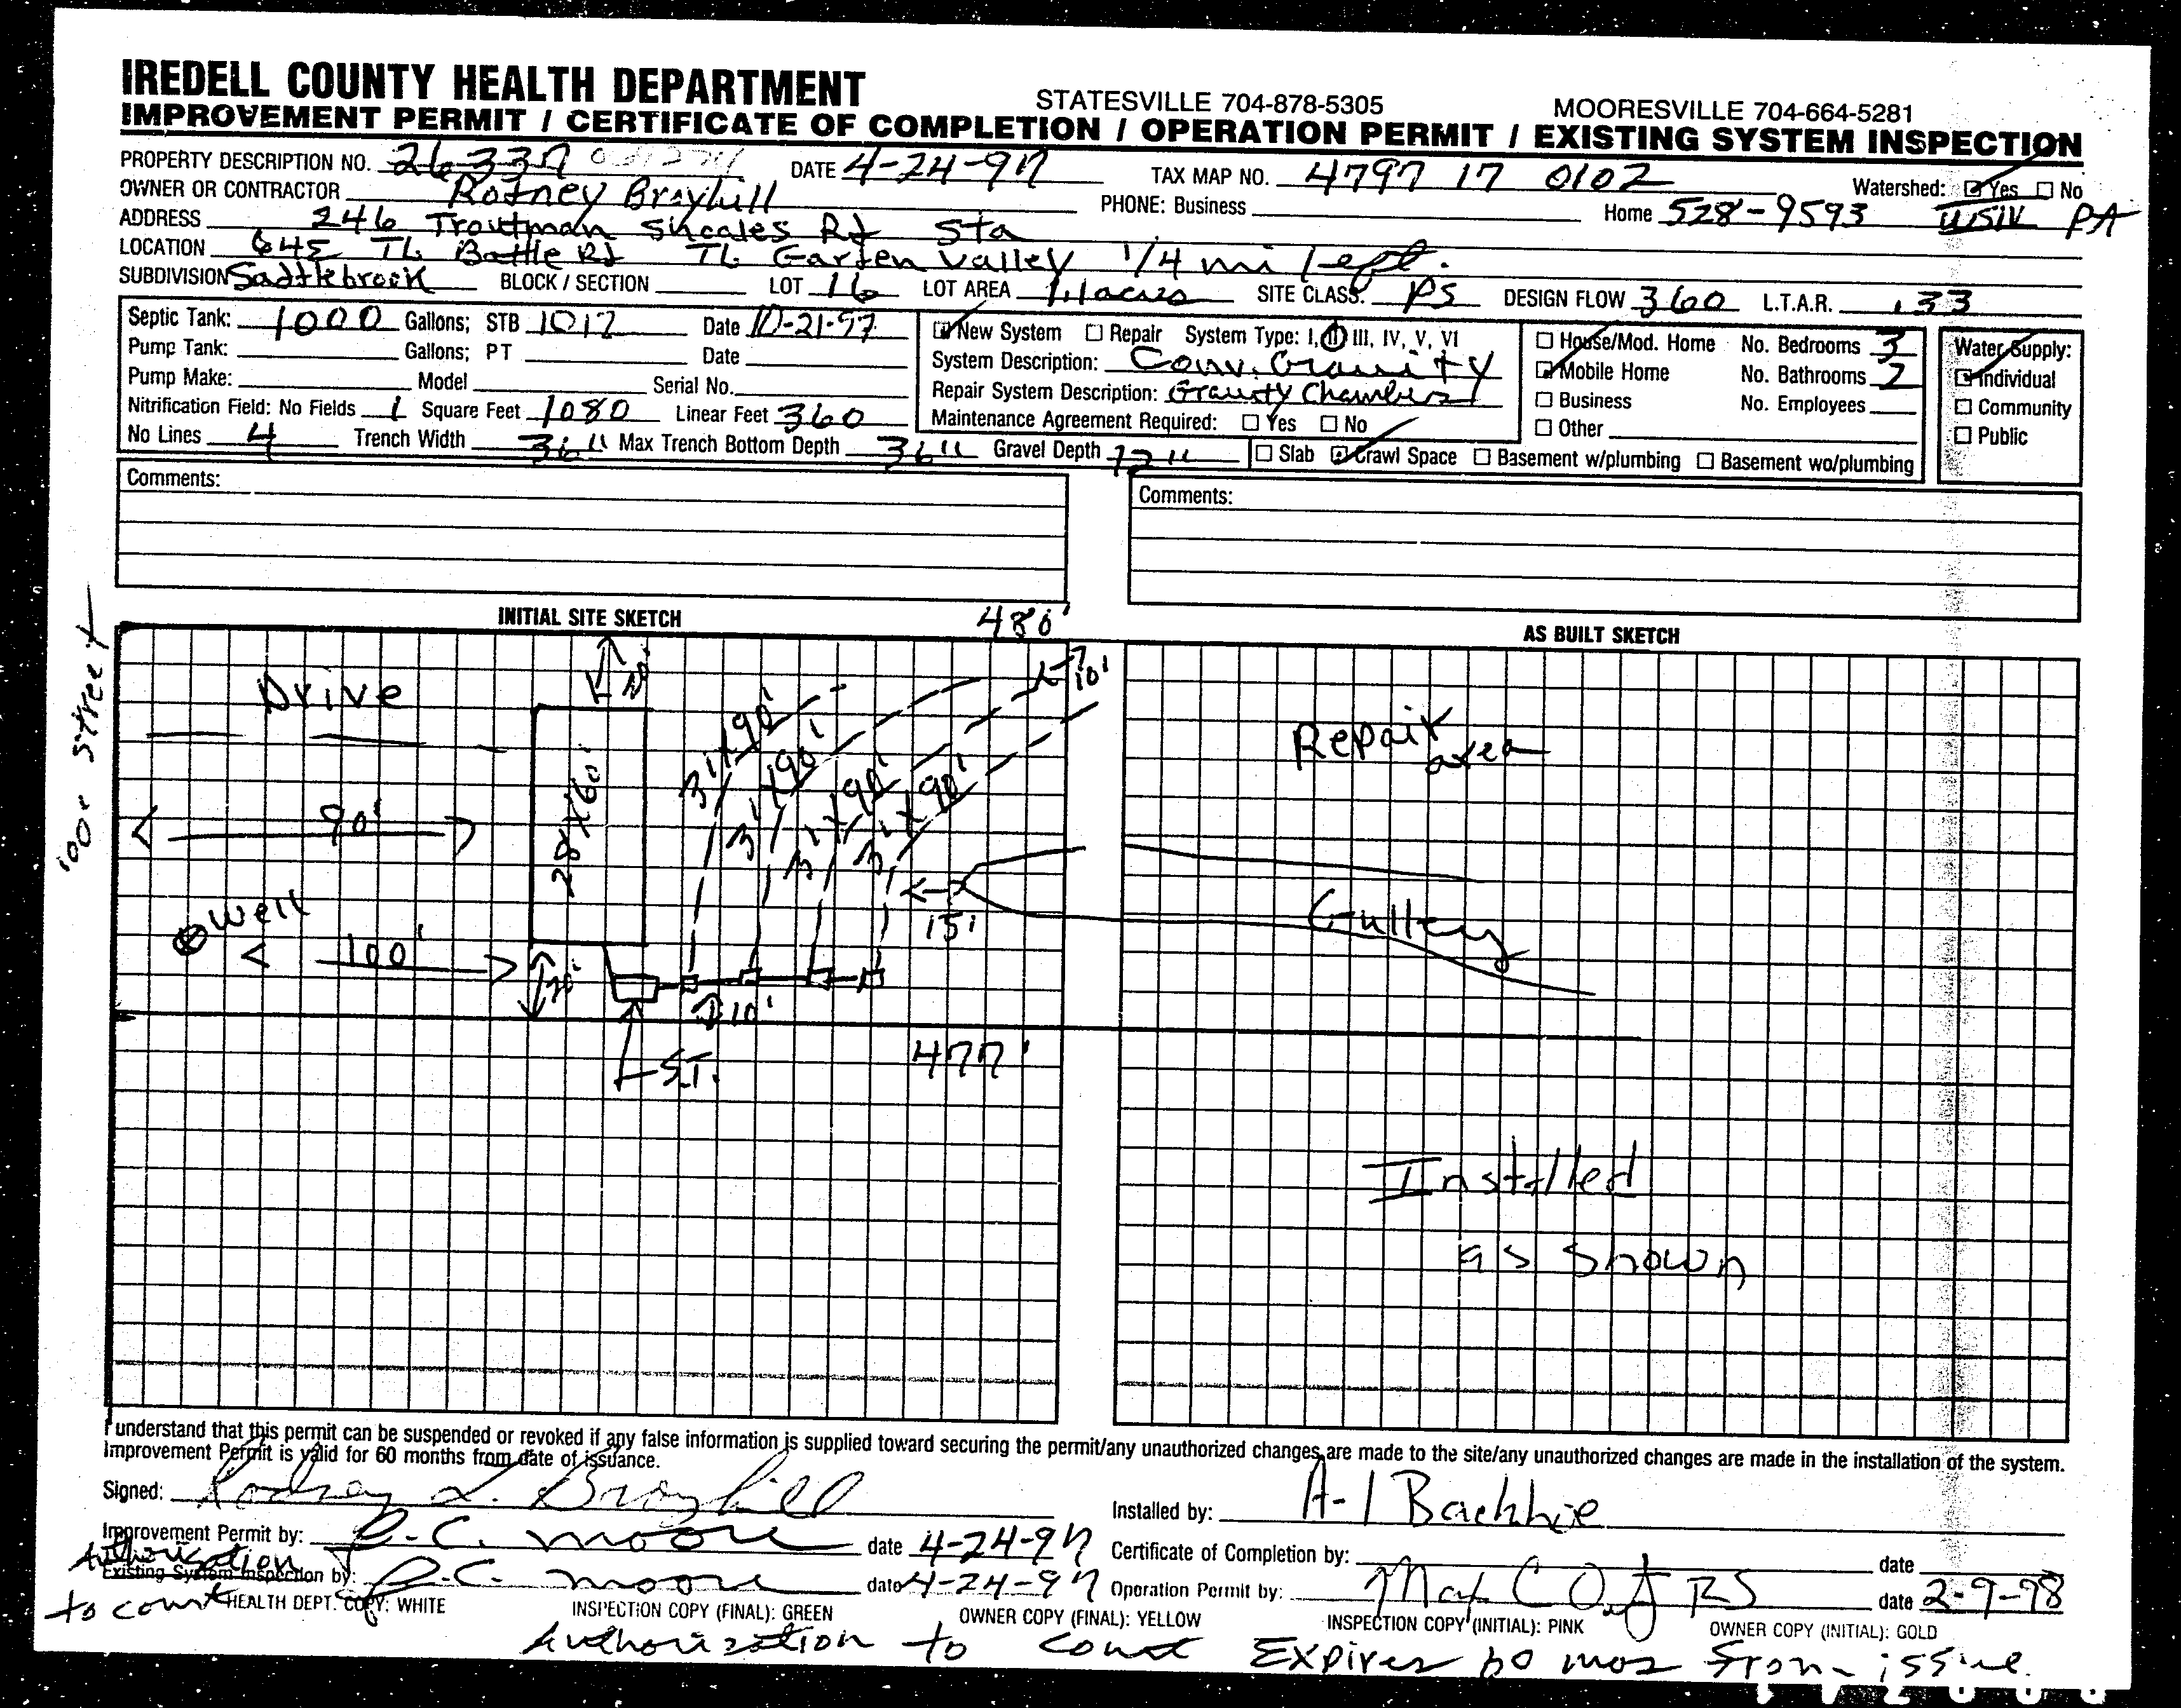 IREDELL COUNTY HEALTH DEPARTMENT
STATESVILLE 704-878-5305 MOORESVILLE 704-664-5281
IMPROVEMENT PERMIT / CERTIFICATE OF COMPLETION / OPERATION PERMIT / EXISTING SYSTEM INSPECTION
PROPERTY DESCRIPTION NO. 26337 DATE 4-24-97 TAX MAP NO. 4797 17 0102 Watershed: Yes No
OWNER OR CONTRACTOR Rodney Broyhill PHONE: Business Home 528-9593 WSIV PA
ADDRESS 246 Troutman Shoales Rd Sta
LOCATION 64E TL Battle Rd TL Garden Valley 1/4 mi left.
SUBDIVISION Saddlebrook BLOCK / SECTION LOT 16 LOT AREA 1.1 acres SITE CLASS. PS DESIGN FLOW 360 L.T.A.R. .33
Septic Tank: 1000 Gallons; STB 1017 Date 10-21-97 New System Repair System Type: I, II, III, IV, V, VI House/Mod. Home No. Bedrooms 3 Water Supply:
Pump Tank: Gallons; PT Date System Description: Conv. Gravity Mobile Home No. Bathrooms 2 Individual
Pump Make: Model Serial No. Repair System Description: Gravity Chambers Business No. Employees Community
Nitrification Field: No Fields 1 Square Feet 1080 Linear Feet 360 Maintenance Agreement Required: Yes No Other Public
No Lines 4 Trench Width 36" Max Trench Bottom Depth 36" Gravel Depth 12" Slab Crawl Space Basement w/plumbing Basement wo/plumbing
Comments: Comments:
INITIAL SITE SKETCH 480' AS BUILT SKETCH
100' Street
Drive
10'
3'x90'
3'x90'
3'x90'
3'x90'
Repair area
90'
28x60'
Well
100'
15'
Gulley
10'
S.T.
477'
Installed
as shown
I understand that this permit can be suspended or revoked if any false information is supplied toward securing the permit/any unauthorized changes are made to the site/any unauthorized changes are made in the installation of the system.
Improvement Permit is valid for 60 months from date of issuance.
Signed: Rodney L. Broyhill Installed by: A-1 Backhoe
Improvement Permit by: R.C. Moore date 4-24-97 Certificate of Completion by: date
Authorization
Existing System Inspection by: R.C. Moore date 4-24-97 Operation Permit by: RS date 2-9-98
to const HEALTH DEPT. COPY: WHITE INSPECTION COPY (FINAL): GREEN OWNER COPY (FINAL): YELLOW INSPECTION COPY (INITIAL): PINK OWNER COPY (INITIAL): GOLD
Authorization to const Expires 60 mos from issue.